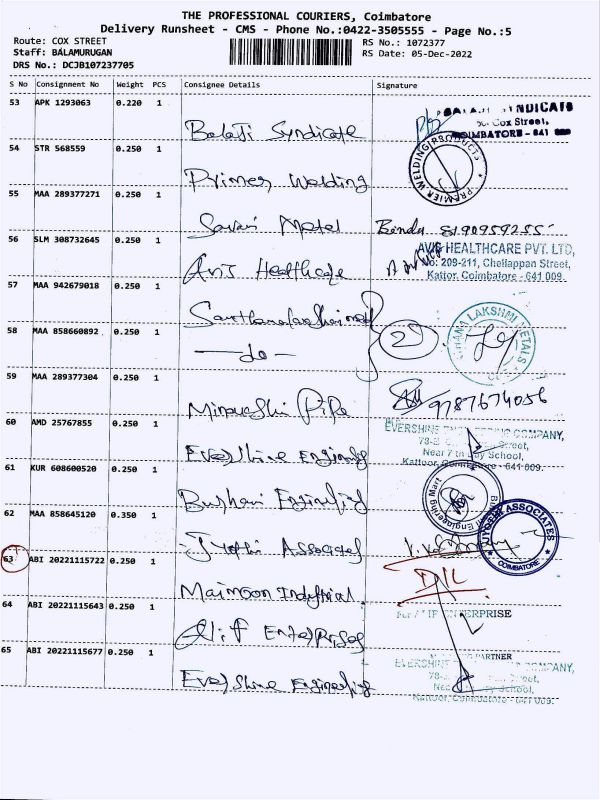 THE PROFESSIONAL COURIERS, Coimbatore
Delivery Runsheet - CMS - Phone No.:0422-3505555 - Page No.:5
Route: COX STREET
RS No.: 1072377
Staff: BALAMURUGAN
RS Date: 05-Dec-2022
DRS No.: DCJB107237705
S No Consignment No Weight PCS Consignee Details Signature
53 APK 1293063 0.220 1
BALAJI SYNDICATE
Cox Street,
COIMBATORE - 641
Balaji Syndicate
54 STR 568559 0.250 1
PREMIER WELDING PRODUCTS
Primer Welding
55 MAA 289377271 0.250 1
Motel
8190959255
56 SLM 308732645 0.250 1
AVIS HEALTHCARE PVT. LTD,
No: 209-211, Chellappan Street,
Kattoor, Coimbatore - 641 009.
Avis Healthcare
57 MAA 942679018 0.250 1
58 MAA 858660892 0.250 1
2
DHANA LAKSHMI METALS
- do -
59 MAA 289377304 0.250 1
9787674056
Pipe
60 AMD 25767855 0.250 1
EVERSHINE ENGINEERING COMPANY,
Street,
Near 7 th Day School,
Kattoor, Coimbatore - 641 009.
Evershine Engineering
61 KUR 608600520 0.250 1
Engineering Mart
Engineering
62 MAA 858645120 0.350 1
JYOTHI ASSOCIATES
COIMBATORE
Jyothi Associates
63 ABI 20221115722 0.250 1
D/L
Maimoon Industrial
64 ABI 20221115643 0.250 1
ENTERPRISE
Alif Enterprises
PARTNER
65 ABI 20221115677 0.250 1
EVERSHINE COMPANY,
Street,
Near Day School,
Kattoor, Coimbatore - 641 009.
Evershine Engineering